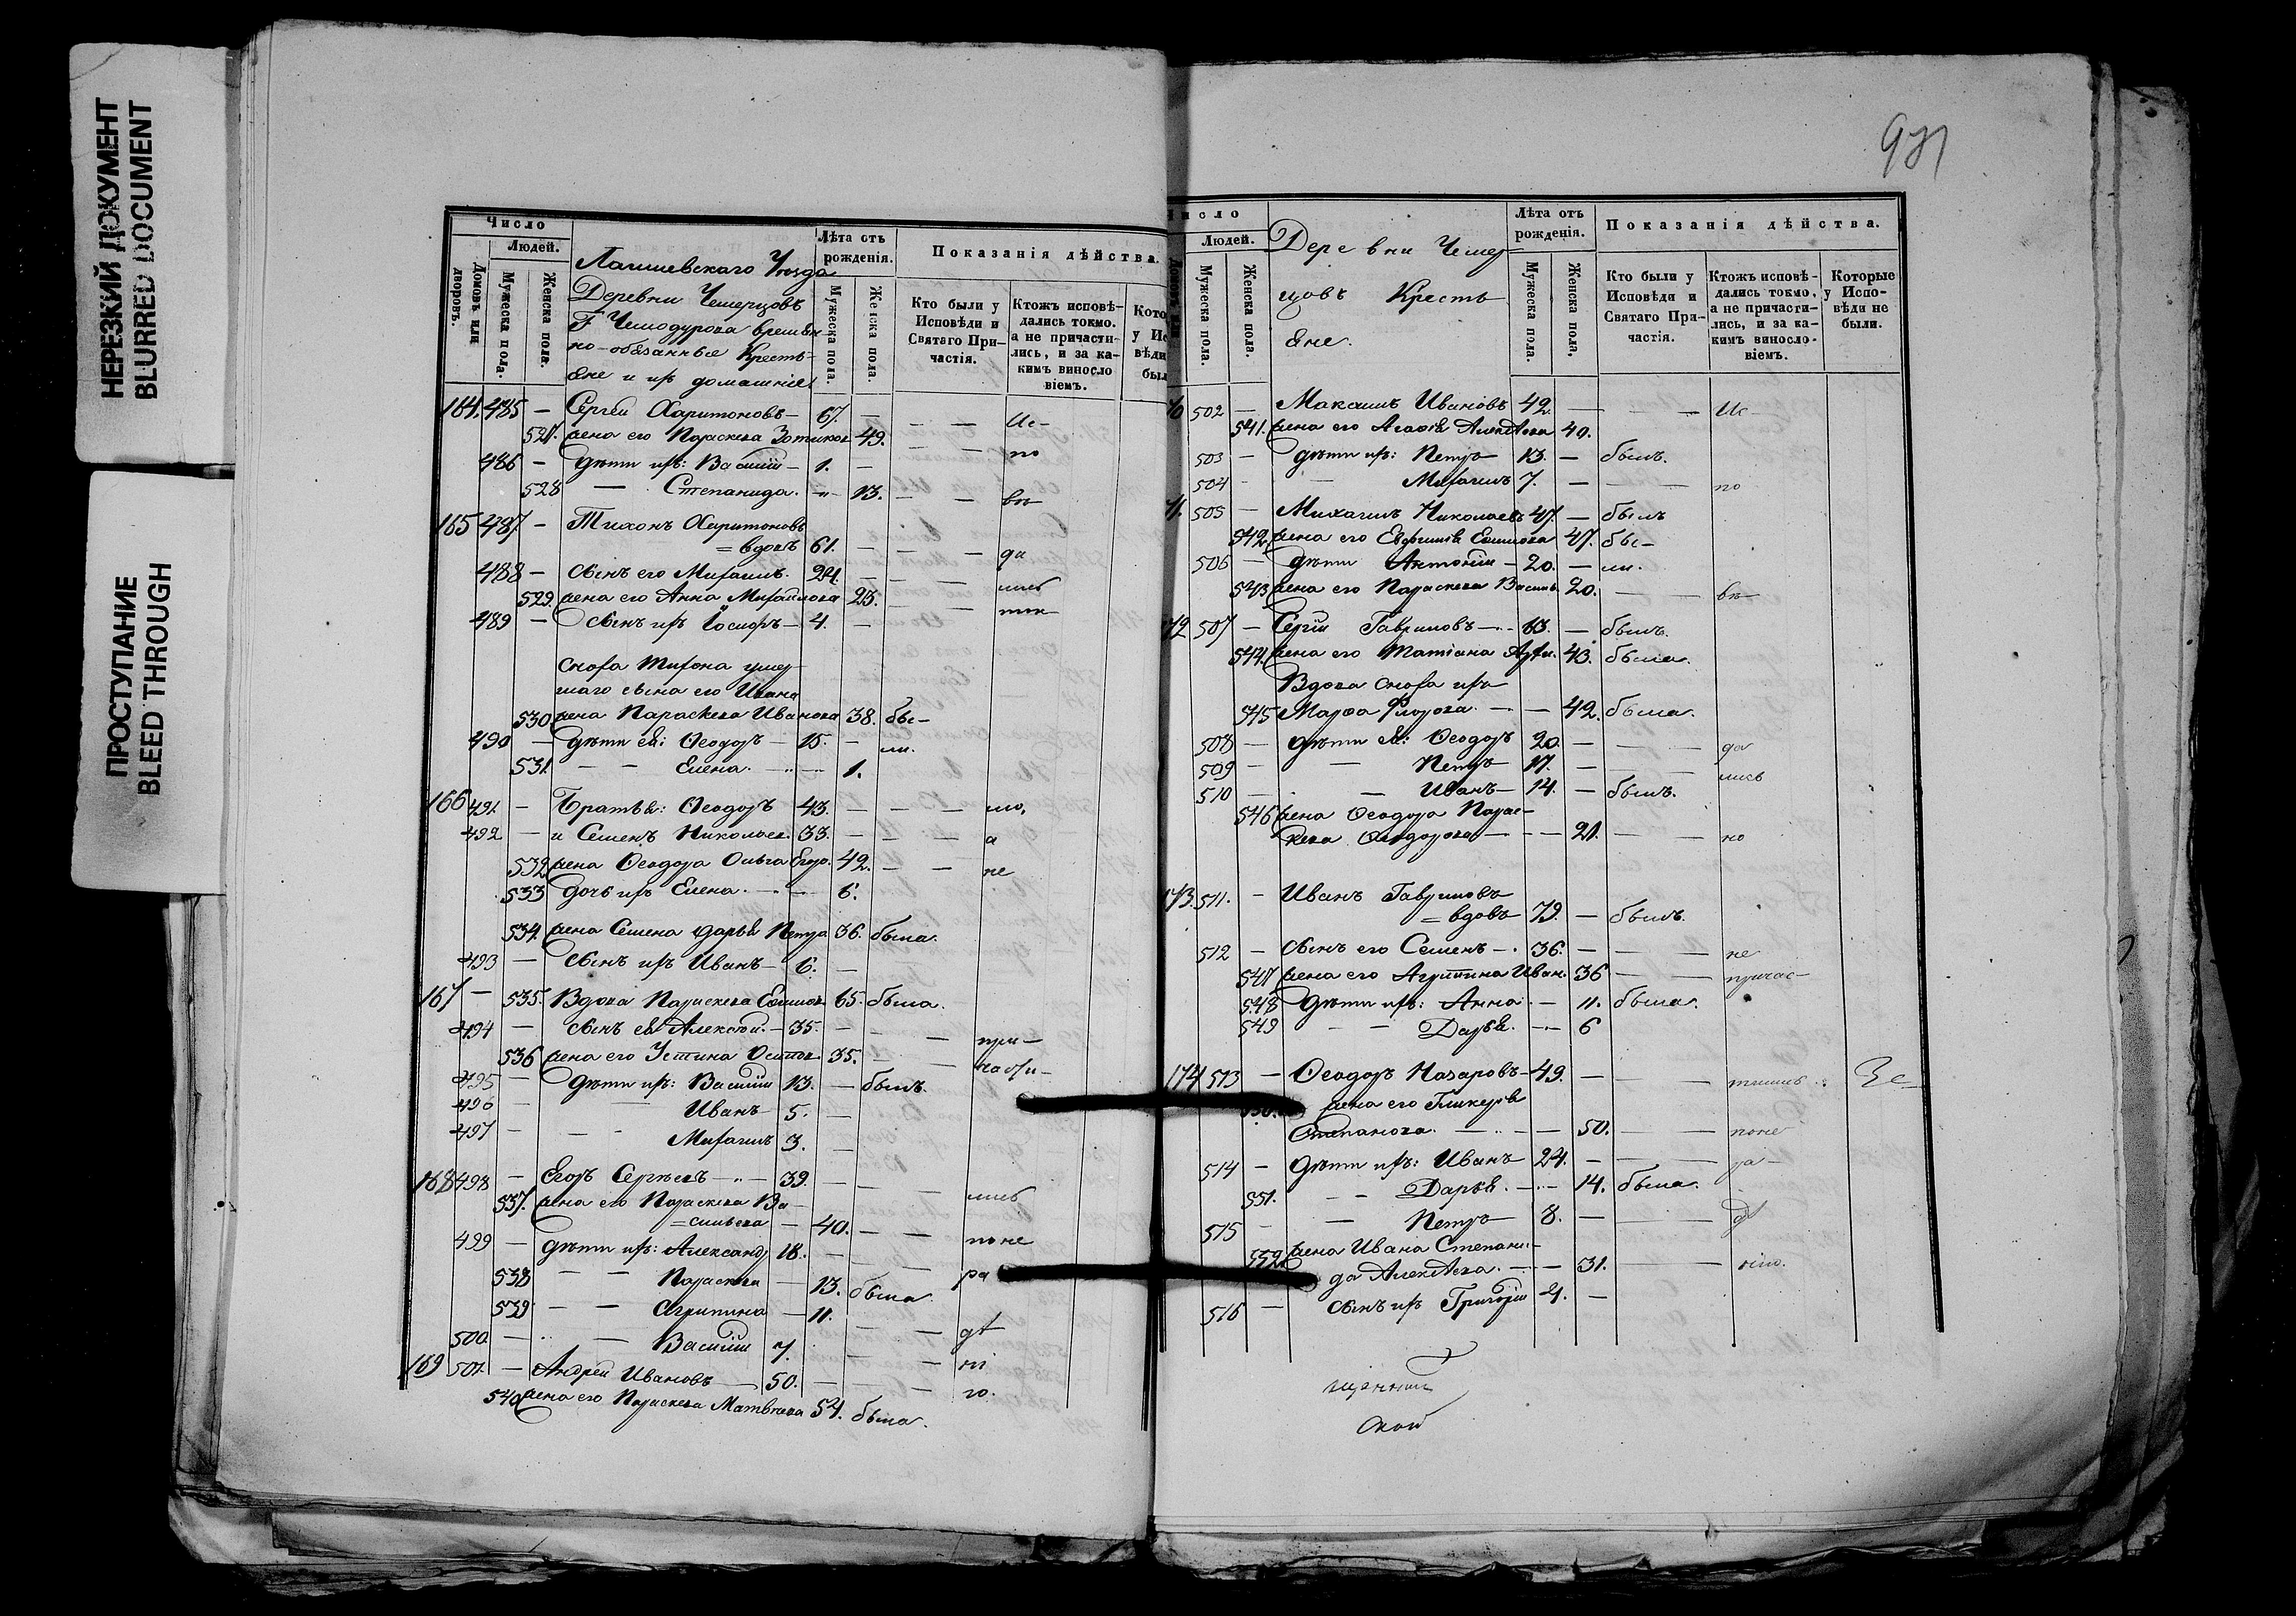 НЕРЕЗКИЙ ДОКУМЕНТ
BLURRED DOCUMENT
ПРОСТУПАНИЕ
BLEED THROUGH
Число
Людей.
Домовъ или дворовъ.
Мужеска пола.
Женска пола.
Лаишевскаго Уѣзда
Деревни Чемерцовъ
Г Чемодурова времен
но-обязанные Кресть-
яне и ихъ домашніе
Лѣта отъ рожденія.
Мужеска пола.
Женска пола.
Показанія дѣйства.
Кто были у Исповѣди и Святаго При-частія.
Ктожъ исповѣ-дались токмо. а не причасти-лись, и за ка-кимъ винослo віемъ.
164. 485 — Сергѣй Харитоновъ — 67. — — — Ис-
527. жена его Параскева Зотиков 49. — — по
486 — дѣти ихъ: Василій — 1. —
528 — Степанида. — 13. — — вѣ
165 487 — Тихонъ Харитоновъ
= вдовъ 61. — — — да
488 — сынъ его Михаилъ. 24. — — — лись
529. жена его Анна Михайлова 23. — — ток
489 — сынъ ихъ Іосифъ — 4. —
сноха Тихона умер-
шаго сына его Ивана
530. жена Параскева Иванова 38. бы-
490 — дѣти ея: Ѳеодоръ — 15. — ли.
531. — — Елена. — 1.
166 491. — Братья: Ѳеодоръ 43. — — — мо,
492 — и Семенъ Николаев. 33. — — а
532 жена Ѳеодора Ольга Егор. 42. — — не
533 дочь ихъ Елена. — 6.
534. жена Семена Дарья Петро 36. была.
493 — сынъ ихъ Иванъ — 6. —
167 — 535. Вдова Параскева Ефимов 65. была.
494 — сынъ ея Алексѣй. — 35. — — при-
536 жена его Устина Осипов 35. — — части-
495 — дѣти ихъ: Василій 13. — былъ
496 — Иванъ 5. —
497 — — Михаилъ 3. —
168 498 — Егоръ Сергѣевъ — 39. — — — лись
537. жена его Параскева Ва-
= сильева — 40. — — по не
499 — дѣти ихъ: Александр 18. — — — ра
538 — — Параскева — 13. была
539 — — Агрипина — 11.
500 — — Василій 7. — — дѣ
169 501. — Андрей Ивановъ 50. — — ні
540 жена его Параскева Матвѣева 54. была. ю.
971
Число
Людей.
Мужеска пола.
Женска пола.
Деревни Чемер
цовъ Кресть
яне.
Лѣта отъ рожденія.
Мужеска пола.
Женска пола,
Показанія дѣйства.
Кто были у Исповѣди и Святаго При-частія.
Ктожъ исповѣ-дались токмо, а не причасти-лись, и за ка-кимъ винослo-віемъ.
Которые у Испо-вѣди не были.
502 — Максимъ Ивановъ 42. — — — Ис-
541. жена его Агафія Алексѣева 40.
503 — дѣти ихъ: Петръ 13. — былъ.
504 — — Михаилъ 7. — — — по
505 — Михаилъ Николаевъ 47. — былъ
542. жена его Евфимія Ефимова 47. бы-
506 — дѣти Антоній — 20. — ли.
543 жена его Параскева Васильев. 20. — — вѣ-
172 507 — Сергій Гавриловъ — 63. — былъ.
544. жена его Татіана Арте. 43. была.
Вдова сноха ихъ
545 Марфа Флорова. — — 42. была.
508 — дѣти ея: Ѳеодоръ 20. — — — да
509 — — Петръ 17. — — — лись
510 — — Иванъ — 14. — былъ.
546 жена Ѳеодора Парас-
кева Ѳеодорова — — 21. — — но
173. 511. — Иванъ Гавриловъ
= вдовъ 79. — былъ.
512 — сынъ его Семенъ — 36. — — — не
547 жена его Агрипина Иван. 36 — — причас-
548 дѣти ихъ: Анна — 11. была.
549 — — Дарья. — 6
174 513 — Ѳеодоръ Назаровъ — 49. — — — тились
550. жена его Гликерія
Степанова. — — 50. — — по не
514 — дѣти ихъ: Иванъ 24. — — ра-
551. — — Дарья. — 14. была.
515 — — Петръ 8. — — — дѣ
552. жена Ивана Степани-
да Алексѣева. — 31. — — нію.
516 — сынъ ихъ Григорій 4. —
щенникъ